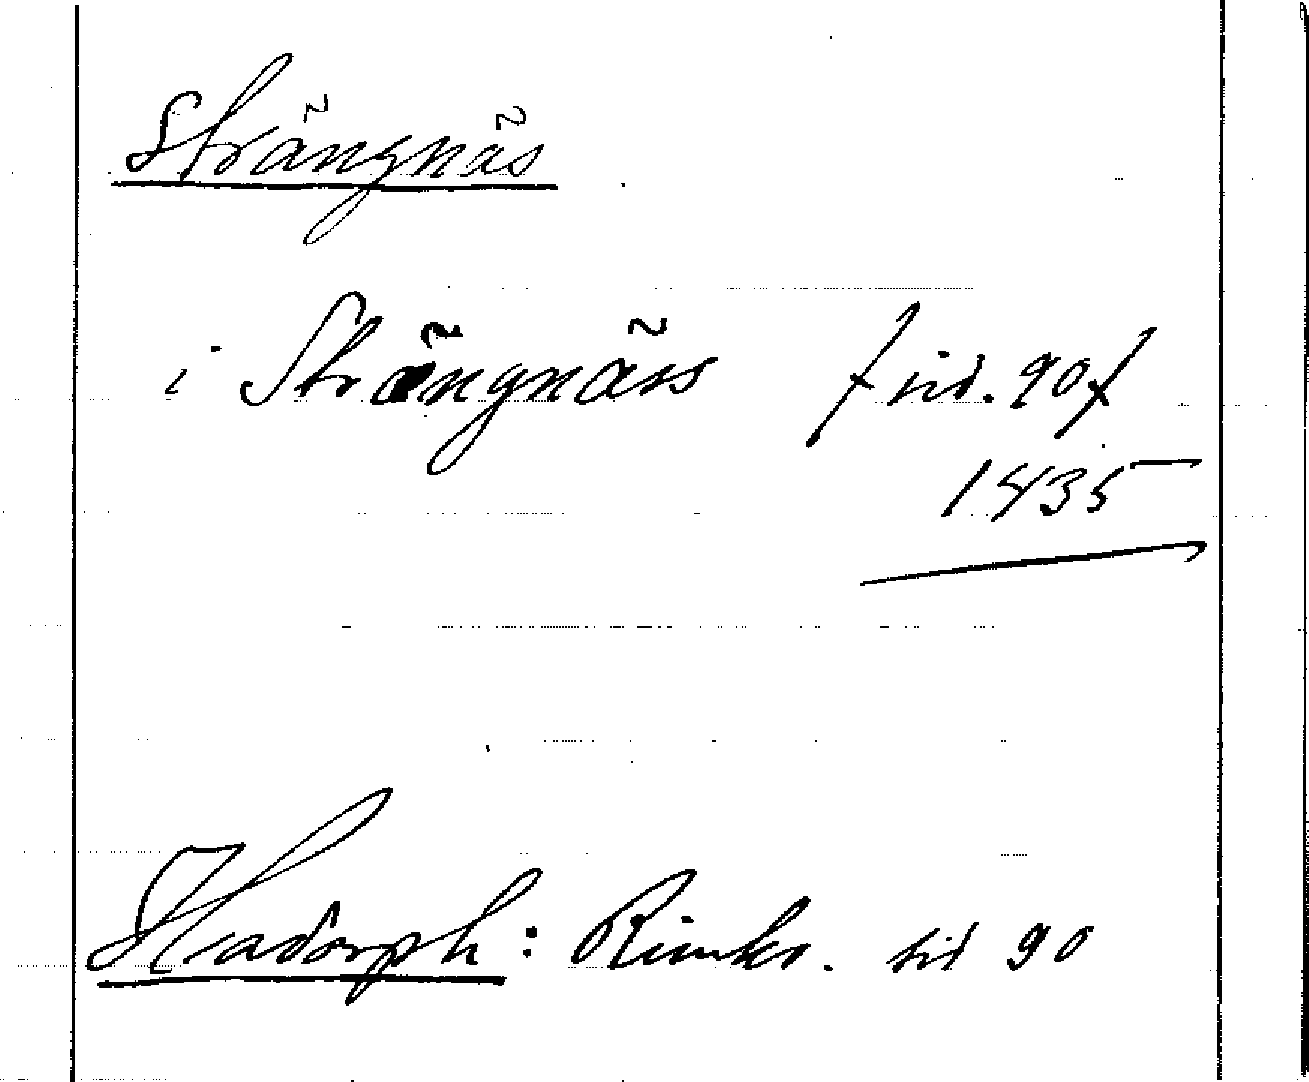 Strängnäs
i Strängnäss /sid. 90/
1435
Hadorph: Rimkr. sid 90